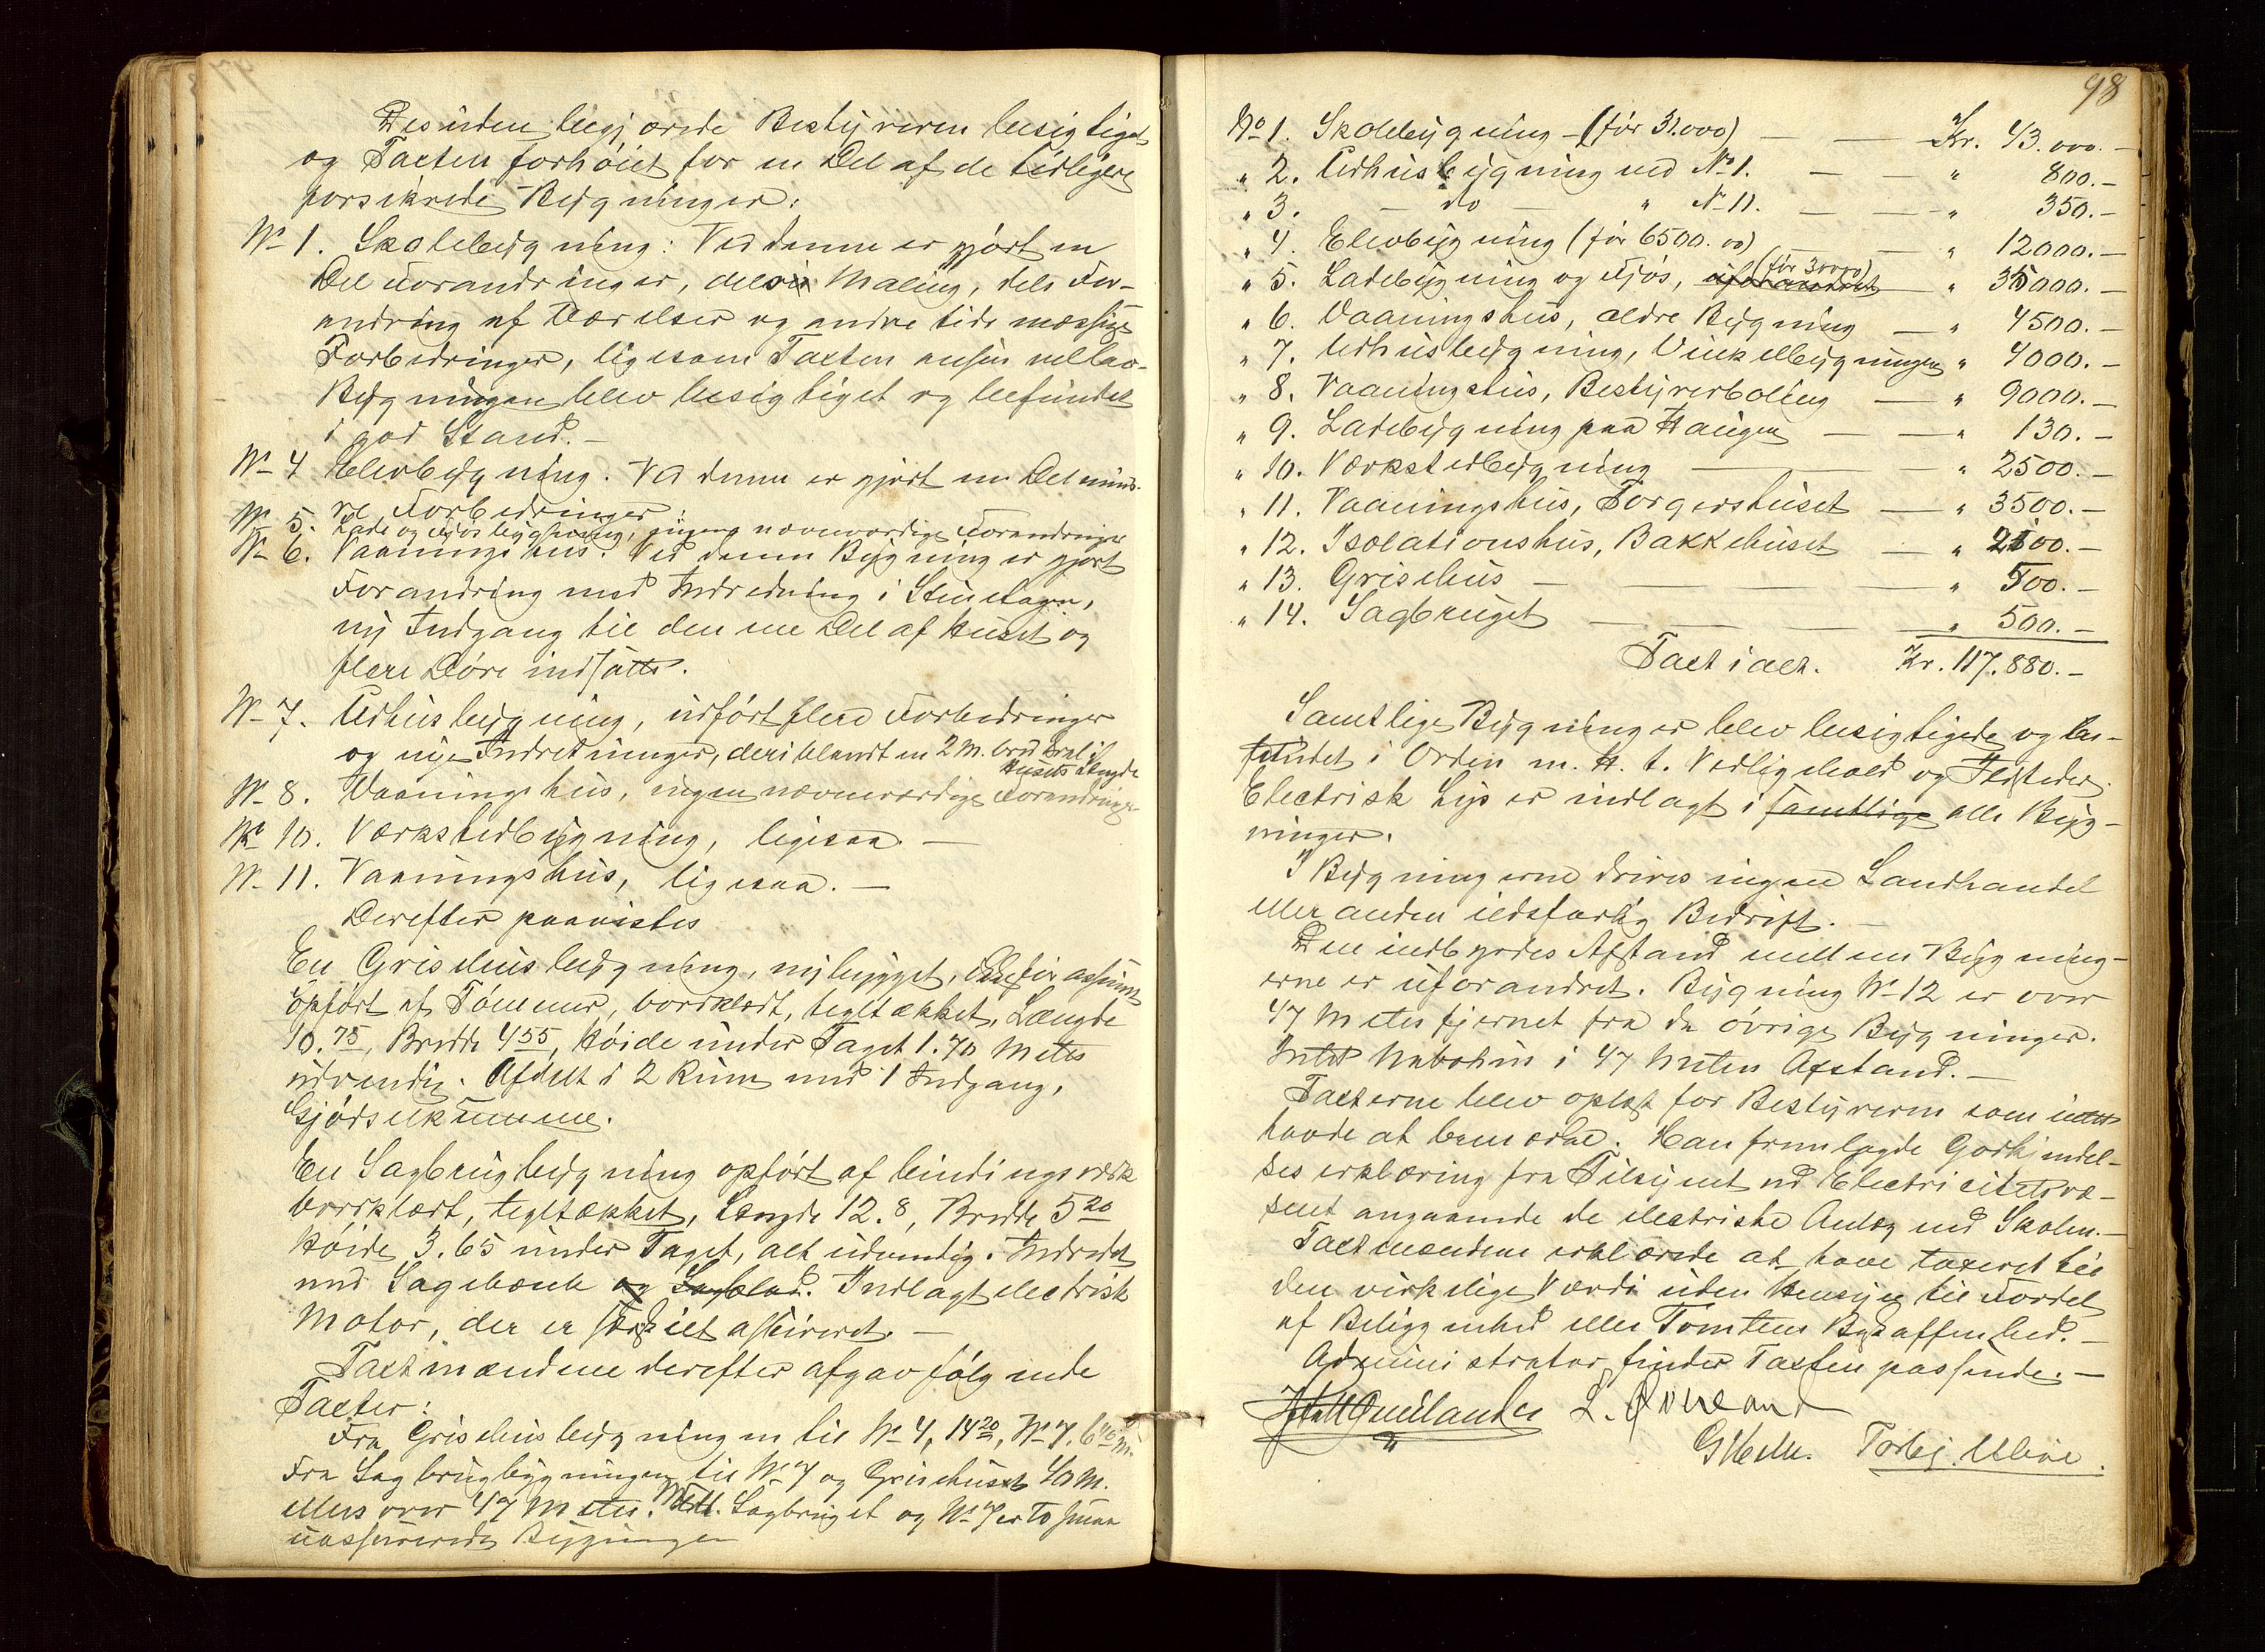 Desuden begjærede Bestyreren besigtiget
og Taxten forhöiet for en Del af de tidligere
forsikrede Bygninger:
No 1. Skolebygning: Ved denne er gjort en
Del Forandringer, dels Maling, dels For-
andring af Værelser og andre tidsmæssige
Forbedringer, ligesom Taxten ansees vel lav.
Bygningen blev besigtiget og befundet
i god Stand. –
No 4 Elevbygning. Ved denne er gjort en Del mind-
re Forbedringer.
No 5. Lade og Fjösbygning, ingen nævneværdige Forandringer
No 6. Vaaningshus. Ved denne Bygning er gjort
Forandring med Indredning i Stenetagen,
ny Indgang til den ene Del af Huset og
flere Döre indsatte.
No 7. Udhusbygning, udfört flere Forbedringer
og nye Indretninger, deriblandt en 2 M. bred Sval i
Husets Længde
No 8. Vaaningshus, ingen nævneværdige Forandringer
No 10. Værkstedbygning, ligesaa. –
No 11. Vaaningshus, ligesaa. –
Derefter paavistes
En Grisehusbygning, nybygget,
opfört af Tömmer, bordklædt, tegltækket, Længde
10.75, Bredde 4.55, Höide under Taget 1.70 Meter
udvendig. Afdelt i 2 Rum med 1 Indgang,
Gjödselkumme.
En Sagbrugbygning opfört af bindingsværk
bordklædt, tegltækket, Længde 12.8, Bredde 5.20
Höide 3.65 under Taget, alt udvendig. Indredet
med Sagebænk og Sagblad. Indlagt electrisk
Motor, der er særskilt assureret. –
Taxtmændene derefter afgav fölgende
Taxter:
Fra Grisehusbygningen til No 4, 14.20, No 7. 6.40 m.
Fra Sagbrugbygningen til No 7 og Grisehuset 40 M.
ellers over 47 Meter. Mell. Sagbruget og No 7 er to smaa
uassurerede Bygninger
98
No 1. Skolebygning – (för 31.000) — Kr. 43.000. –
" 2. Udhusbygning ved No 1. — " 800. –
" 3. — do — " No 11. — " 350. –
" 4. Elevbygning (för 6500.00) — " 12000. –
" 5. Ladebygning og Fjös, uforandret (för 30000) — " 35000. –
" 6. Vaaningshus, ældre Bygning — " 4500. –
" 7. Udhusbygning, Vinkelbygningen " 4000. –
" 8. Vaaningshus, Bestyrerbolig — " 9000. –
" 9. Ladebygning paa Haugen — " 130. –
" 10. Værkstedbygning — " 2500. –
" 11. Vaaningshus, Torgershuset — " 3500. –
" 12. Isolationshus, Bakkehuset — " 2100. –
" 13. Grisehus — " 500. –
" 14. Sagbruget — " 500. –
Taxt ialt. Kr. 117.880. –
Samtlige Bygninger blev besigtigede og be-
fundet i Orden m. H. t. Vedligehold og Ildsteder.
Electrisk Lys er indlagt i samtlige alle Byg-
ninger.
I Bygningerne drives ingen Landhandel
eller anden ildsfarlig Bedrift. –
Den indbyrdes Afstand mellem Bygning-
erne er uforandret. Bygning No 12 er over
47 Meter fjernet fra de övrige Bygninger.
Intet Nabohus i 47 Meters Afstand. –
Taxterne blev oplæst for Bestyreren som intet
havde at bemærke. Han fremlagde Godkjendel-
ses erklæring fra Tilsynet ved Electricitetsvæ-
senet angaaende de electriske Anlæg ved Skolen. –
Taxtmændene erklærede at have taxeret til
den virkelige Værdi uden Hensyn til Fordel
af Beliggenhed eller Tomtens Beskaffenhed. –
Administrator finder Taxten passende. –
L. Öveland
Torbj.